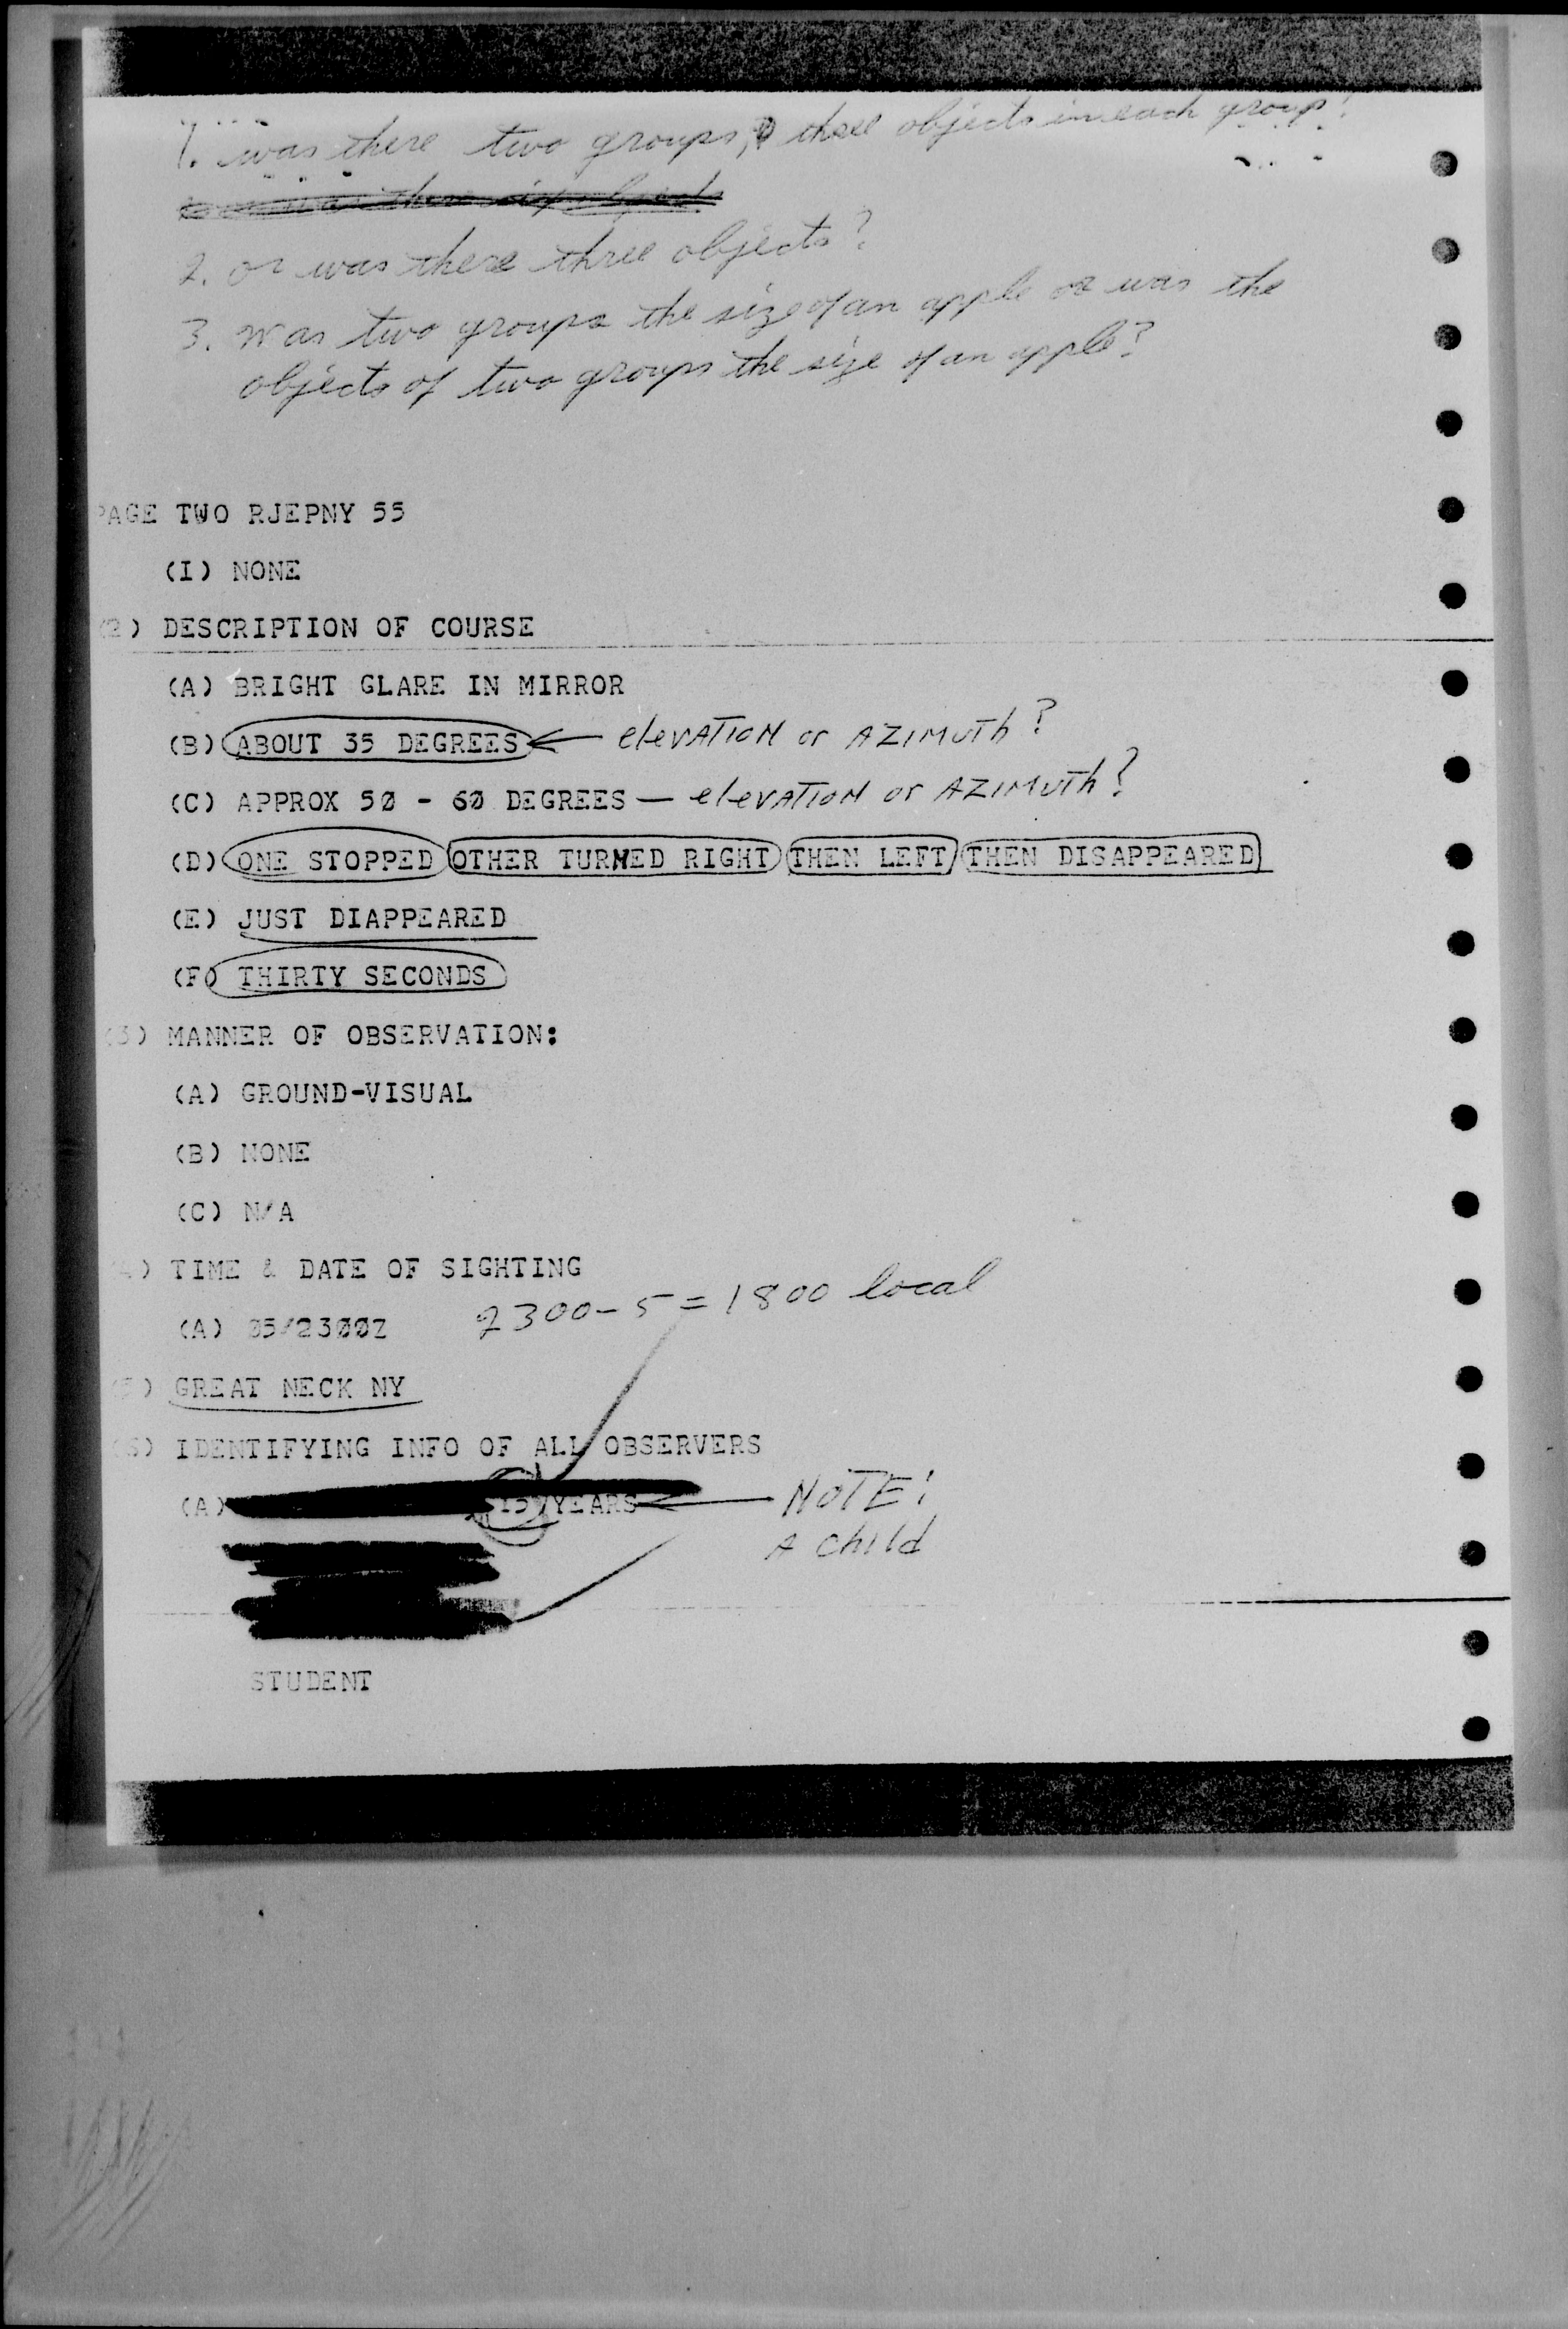 1. was there two groups, three objects in each group?
2. or was there three objects?
3. was two groups the size of an apple or was the
objects of two groups the size of an apple?
PAGE TWO RJEPNY 55
(I) NONE
(2) DESCRIPTION OF COURSE
(A) BRIGHT GLARE IN MIRROR
(B) ABOUT 35 DEGREES ← elevATION or AZIMUTh?
(C) APPROX 5Ø - 6Ø DEGREES — elevATION or AZIMUTh?
(D) ONE STOPPED OTHER TURNED RIGHT THEN LEFT THEN DISAPPEARED
(E) JUST DIAPPEARED
(F) THIRTY SECONDS
(3) MANNER OF OBSERVATION:
(A) GROUND-VISUAL
(B) NONE
(C) N/A
(4) TIME & DATE OF SIGHTING
(A) Ø5/23ØØZ 2300-5=1800 local
(5) GREAT NECK NY
(6) IDENTIFYING INFO OF ALL OBSERVERS
(A) YEARS ← NOTE!
A child
STUDENT